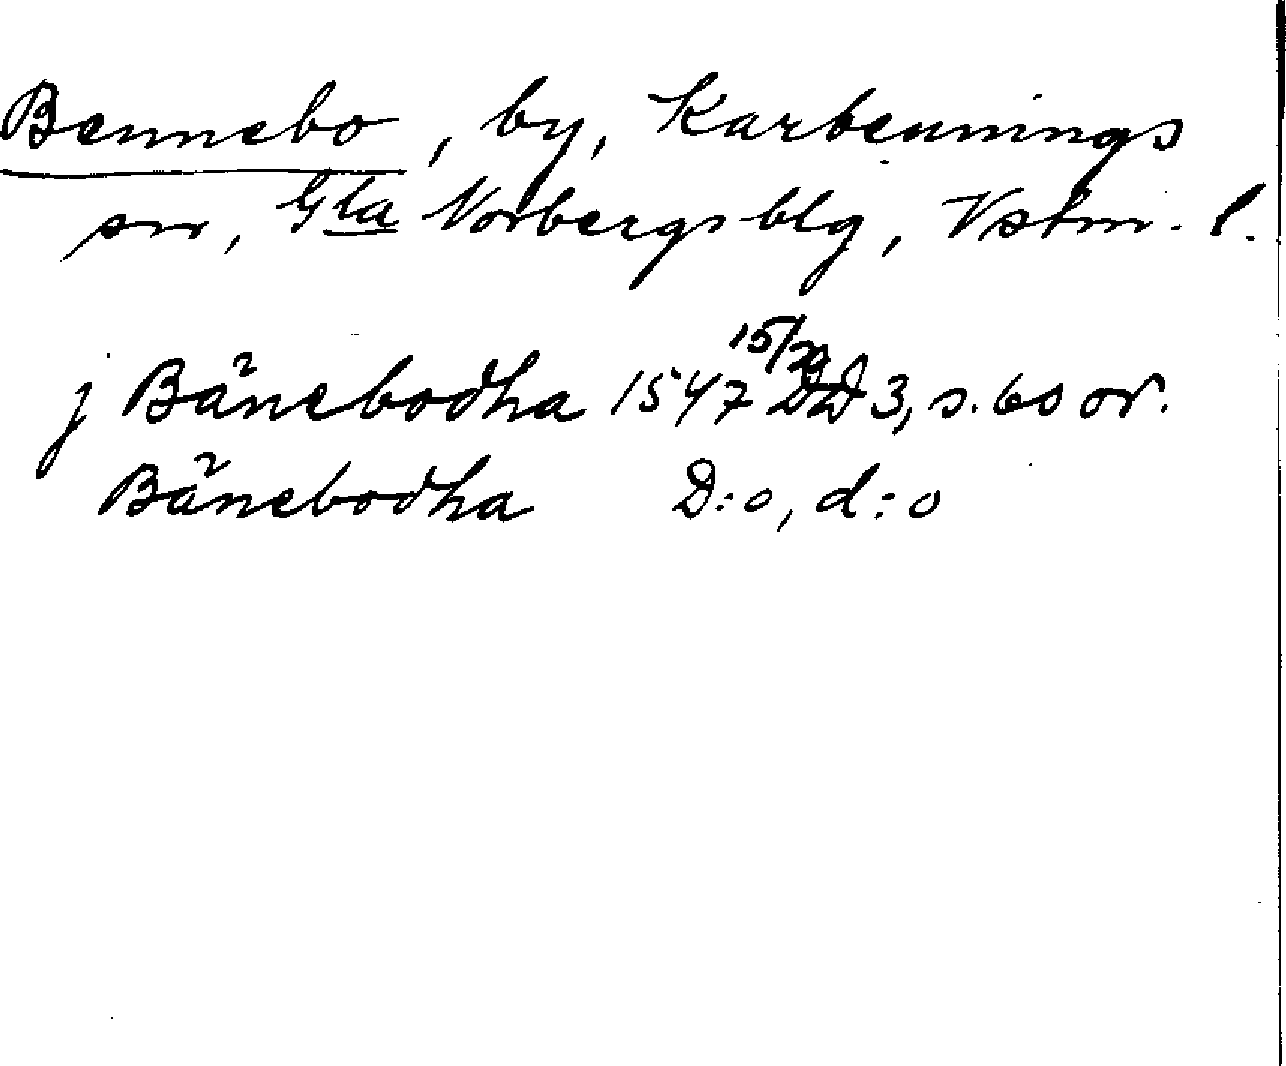 Bennebo, by, Karbennings
sn, Gla Norbergs blg, Vstm. l.
j Bänebodha 1547 15/29 DD 3, s. 60 or.
Bänebodha D:o, d:o